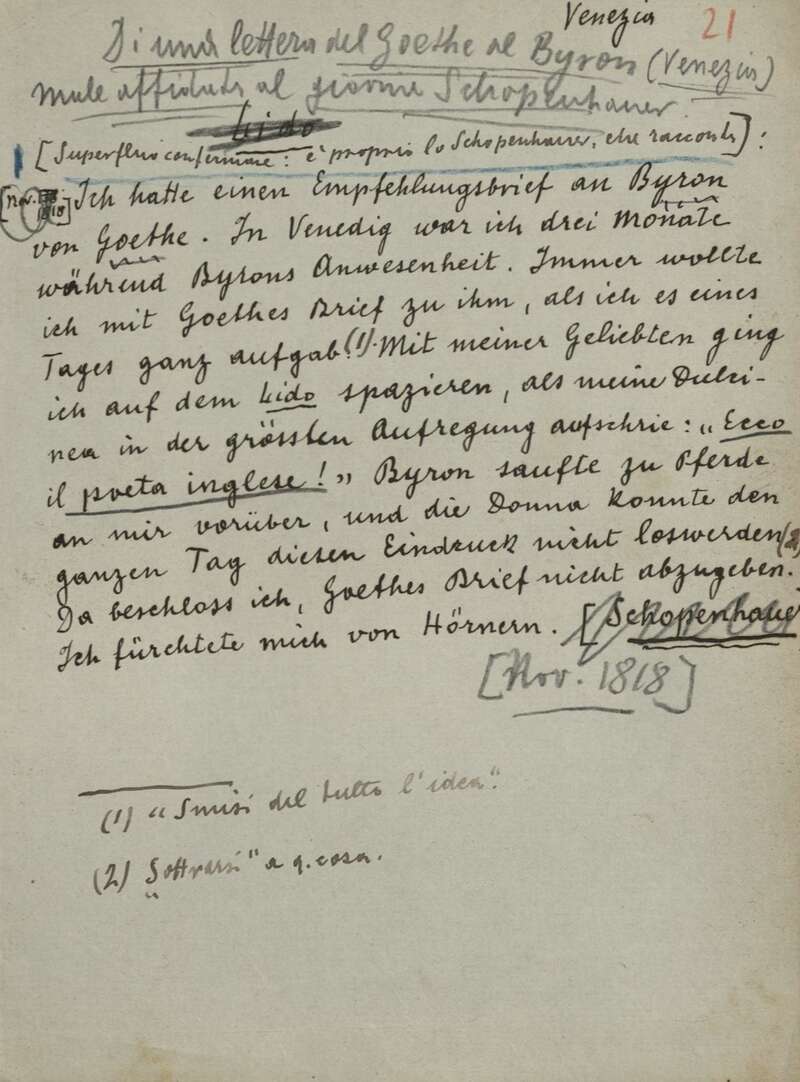 Venezia
21
Di una lettera del Goethe al Byron (Venezia)
male affidata al giovine Schopenhauer.
Lido
[Superfluo confermare: è proprio lo Schopenhauer, che racconta]:
[Nov. 1818] Ich hatte einen Empfehlungsbrief an Byron
von Goethe. In Venedig war ich drei Monate
während Byrons Anwesenheit. Immer wollte
ich mit Goethes Brief zu ihm, als ich es eines
Tages ganz aufgab.(1) Mit meiner Geliebten ging
ich auf dem Lido spazieren, als meine Dulci-
nea in der grössten Aufregung aufschrie: „Ecco
il poeta inglese!” Byron saufte zu Pferde
an mir vorüber, und die Donna konnte den
ganzen Tag diesen Eindruck nicht loswerden(2)
Da beschloss ich, Goethes Brief nicht abzugeben.
Ich fürchtete mich von Hörnern. [Schopenhauer
[Nov. 1818]
(1) “Smisi del tutto l'idea”.
(2) „Sottrarsi” a q. cosa.